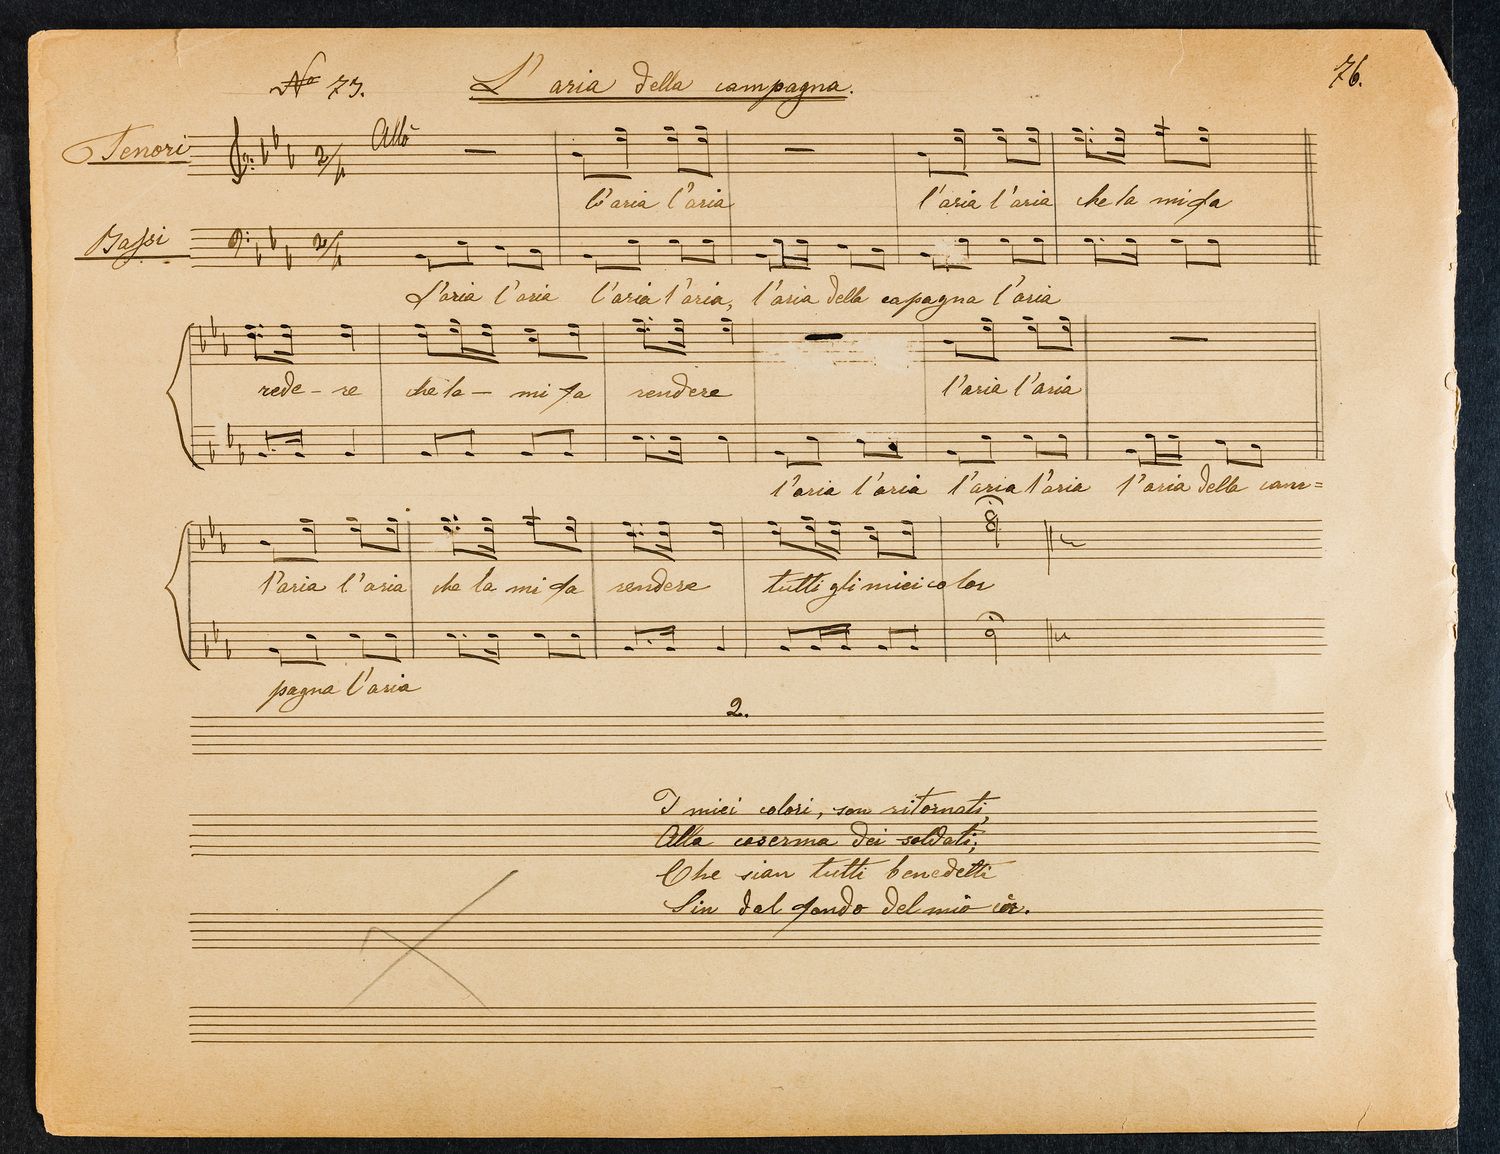 No 73. L'aria della campagna. 76.
Tenori
Allo
2/4
l'aria l'aria l'aria l'aria che la mi fa
Bassi
2/4
L'aria l'aria l'aria l'aria, l'aria della capagna l'aria
rede-re che la - mi fa rendere l'aria l'aria
l'aria l'aria l'aria l'aria l'aria della cam=
l'aria l'aria che la mi fa rendere tutti gli miei color
pagna l'aria
2.
I miei colori, son ritornati,
Alla caserma dei soldati;
Che sian tutti benedetti
Sin dal fondo del mio cor.